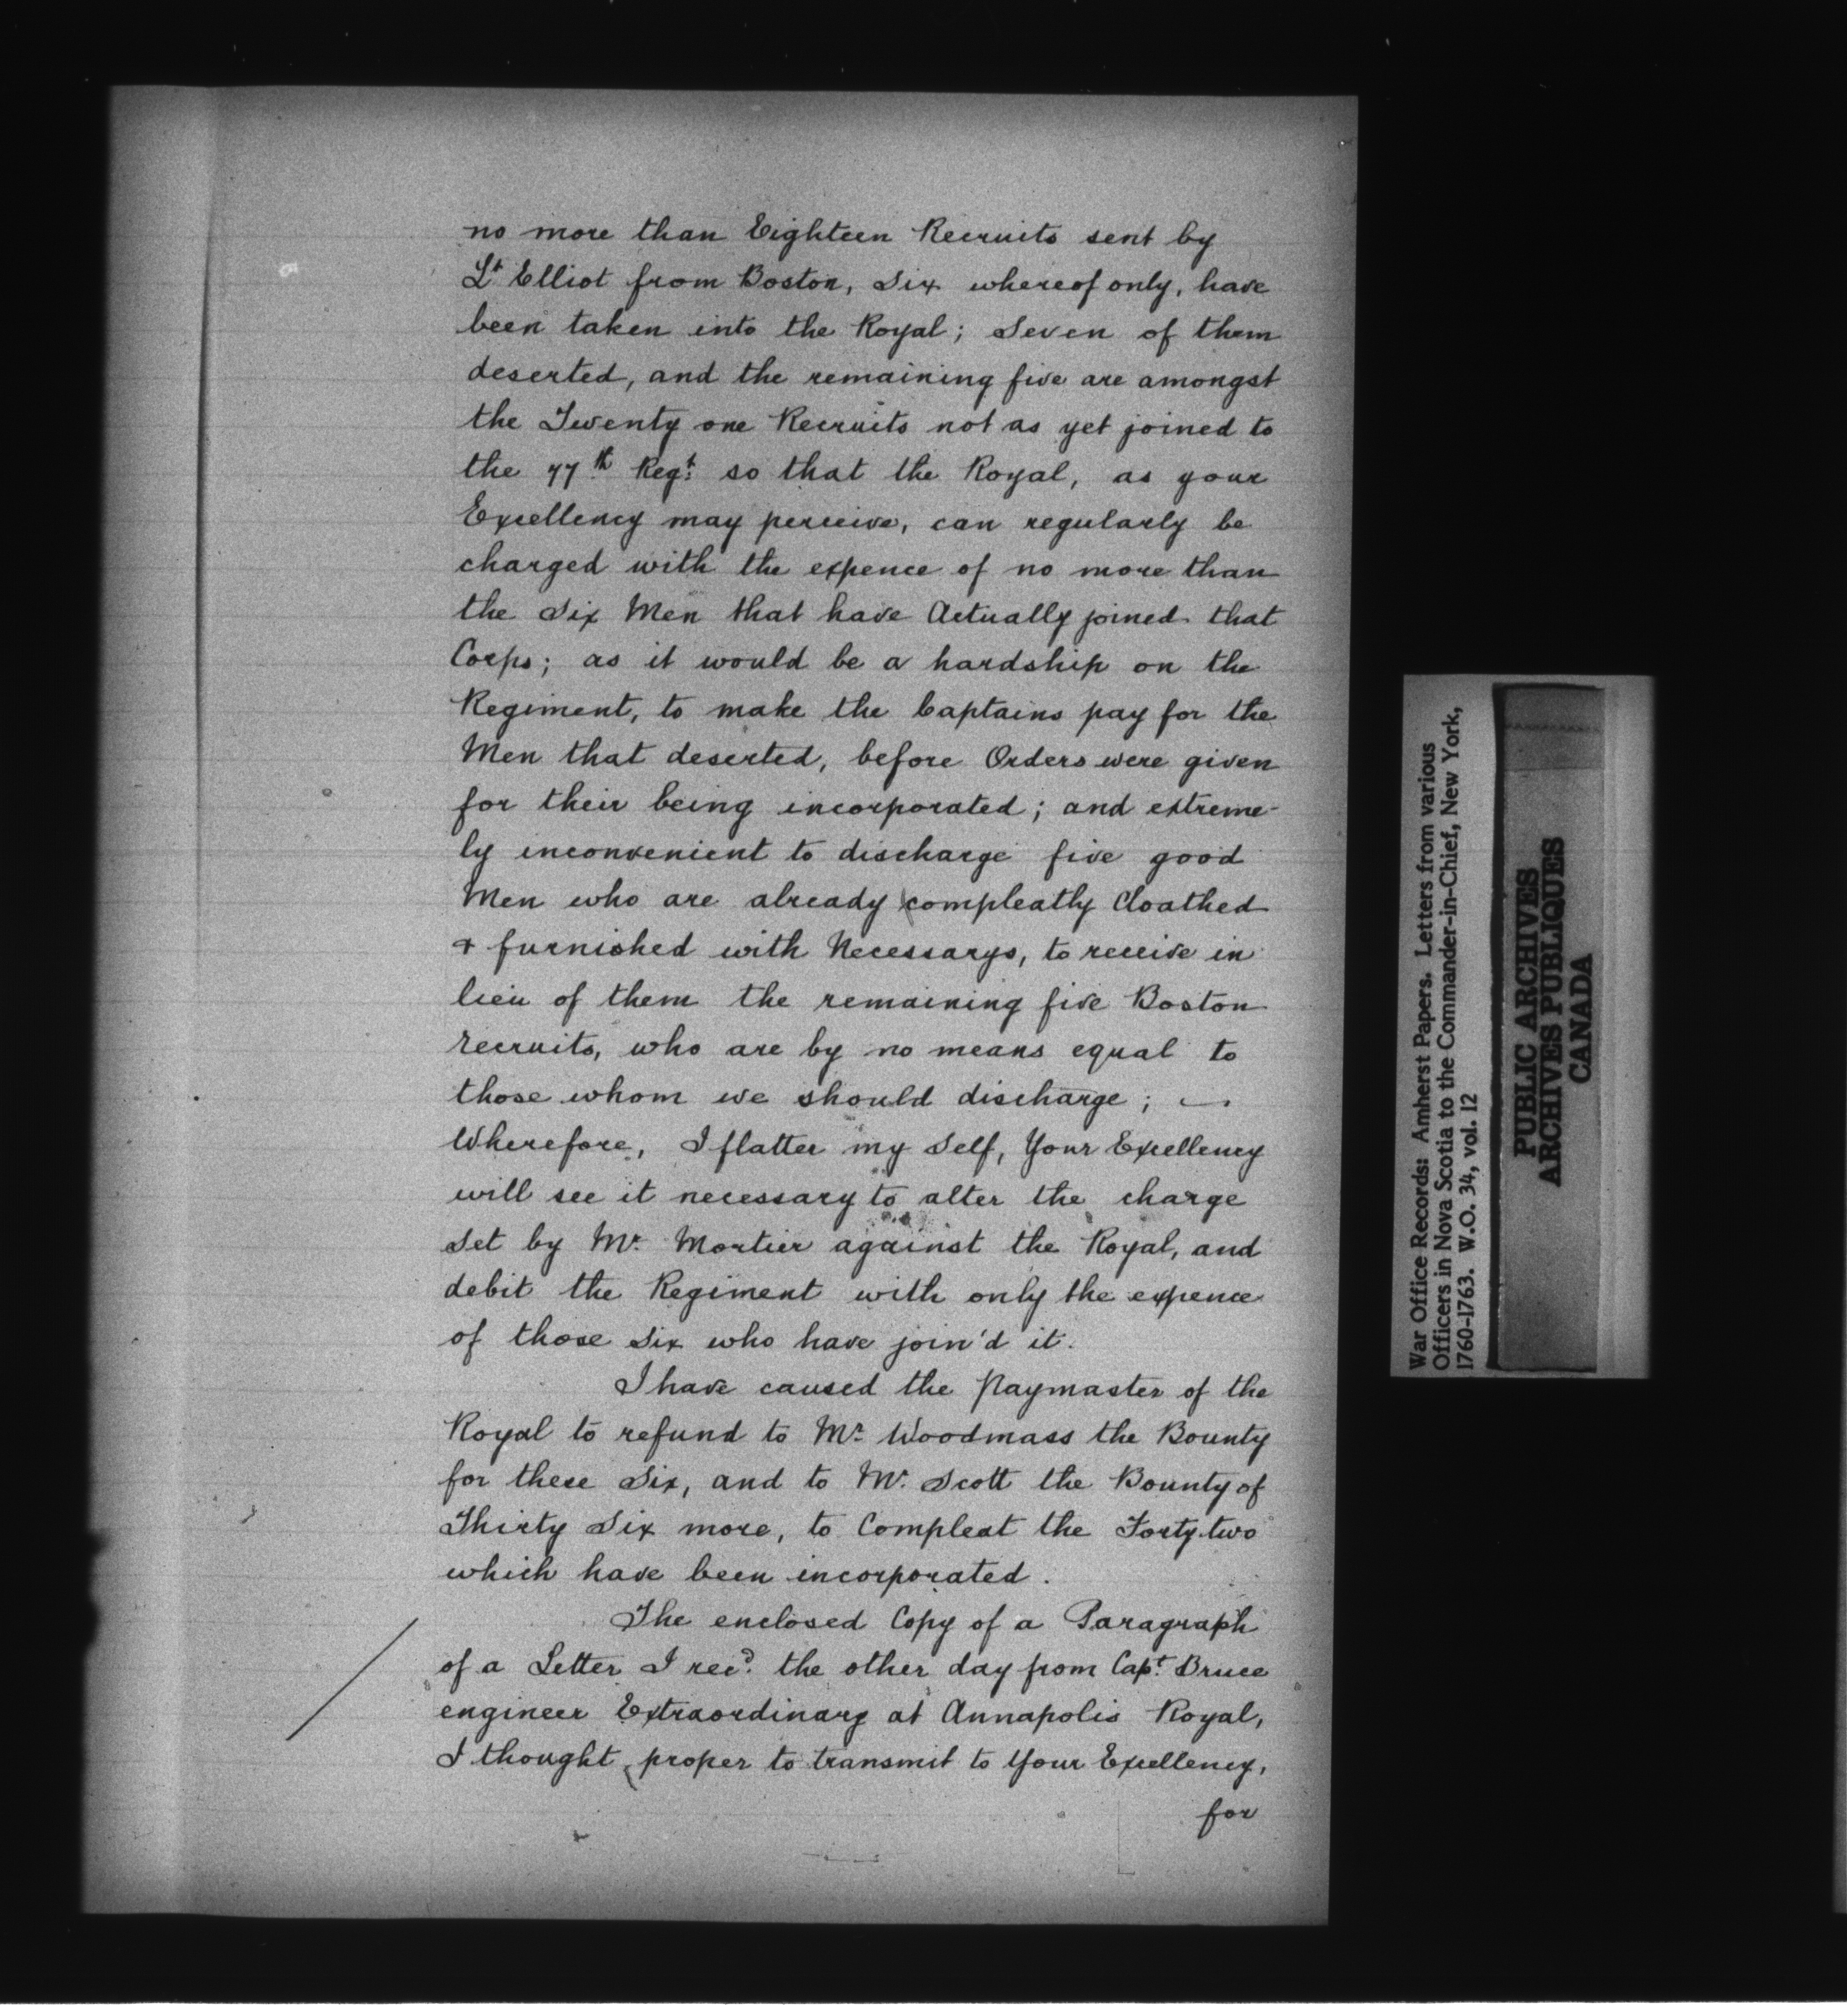 no more than Eighteen Recruits sent by
Lt Elliot from Boston, Six whereof only, have
been taken into the Royal; Seven of them
deserted, and the remaining five are amongst
the Twenty one Recruits not as yet joined to
the 77th Regt. so that the Royal, as your
Excellency may perceive, can regularly be
charged with the expence of no more than
the Six Men that have Actually joined that
Corps; as it would be a hardship on the
Regiment, to make the Captains pay for the
Men that deserted, before Orders were given
for their being incorporated; and extreme-
ly inconvenient to discharge five good
Men who are already compleatly Cloathed
& furnished with Necessarys, to receive in
lieu of them the remaining five Boston
recruits, who are by no means equal to
those whom we should discharge; —
Wherefore, I flatter my Self, Your Excellency
will see it necessary to alter the charge
Set by Mr. Mortier against the Royal, and
debit the Regiment with only the expence
of those Six who have join'd it.
I have caused the Paymaster of the
Royal to refund to Mr. Woodmass the Bounty
for these Six, and to Mr. Scott the Bounty of
Thirty Six more, to Compleat the Forty two
which have been incorporated.
The enclosed Copy of a Paragraph
of a Letter I recd. the other day from Capt. Bruce
engineer Extraordinary at Annapolis Royal,
I thought proper to transmit to Your Excellency,
for
War Office Records: Amherst Papers. Letters from various
Officers in Nova Scotia to the Commander-in-Chief, New York,
1760-1763. W.O. 34, vol. 12
PUBLIC ARCHIVES
ARCHIVES PUBLIQUES
CANADA